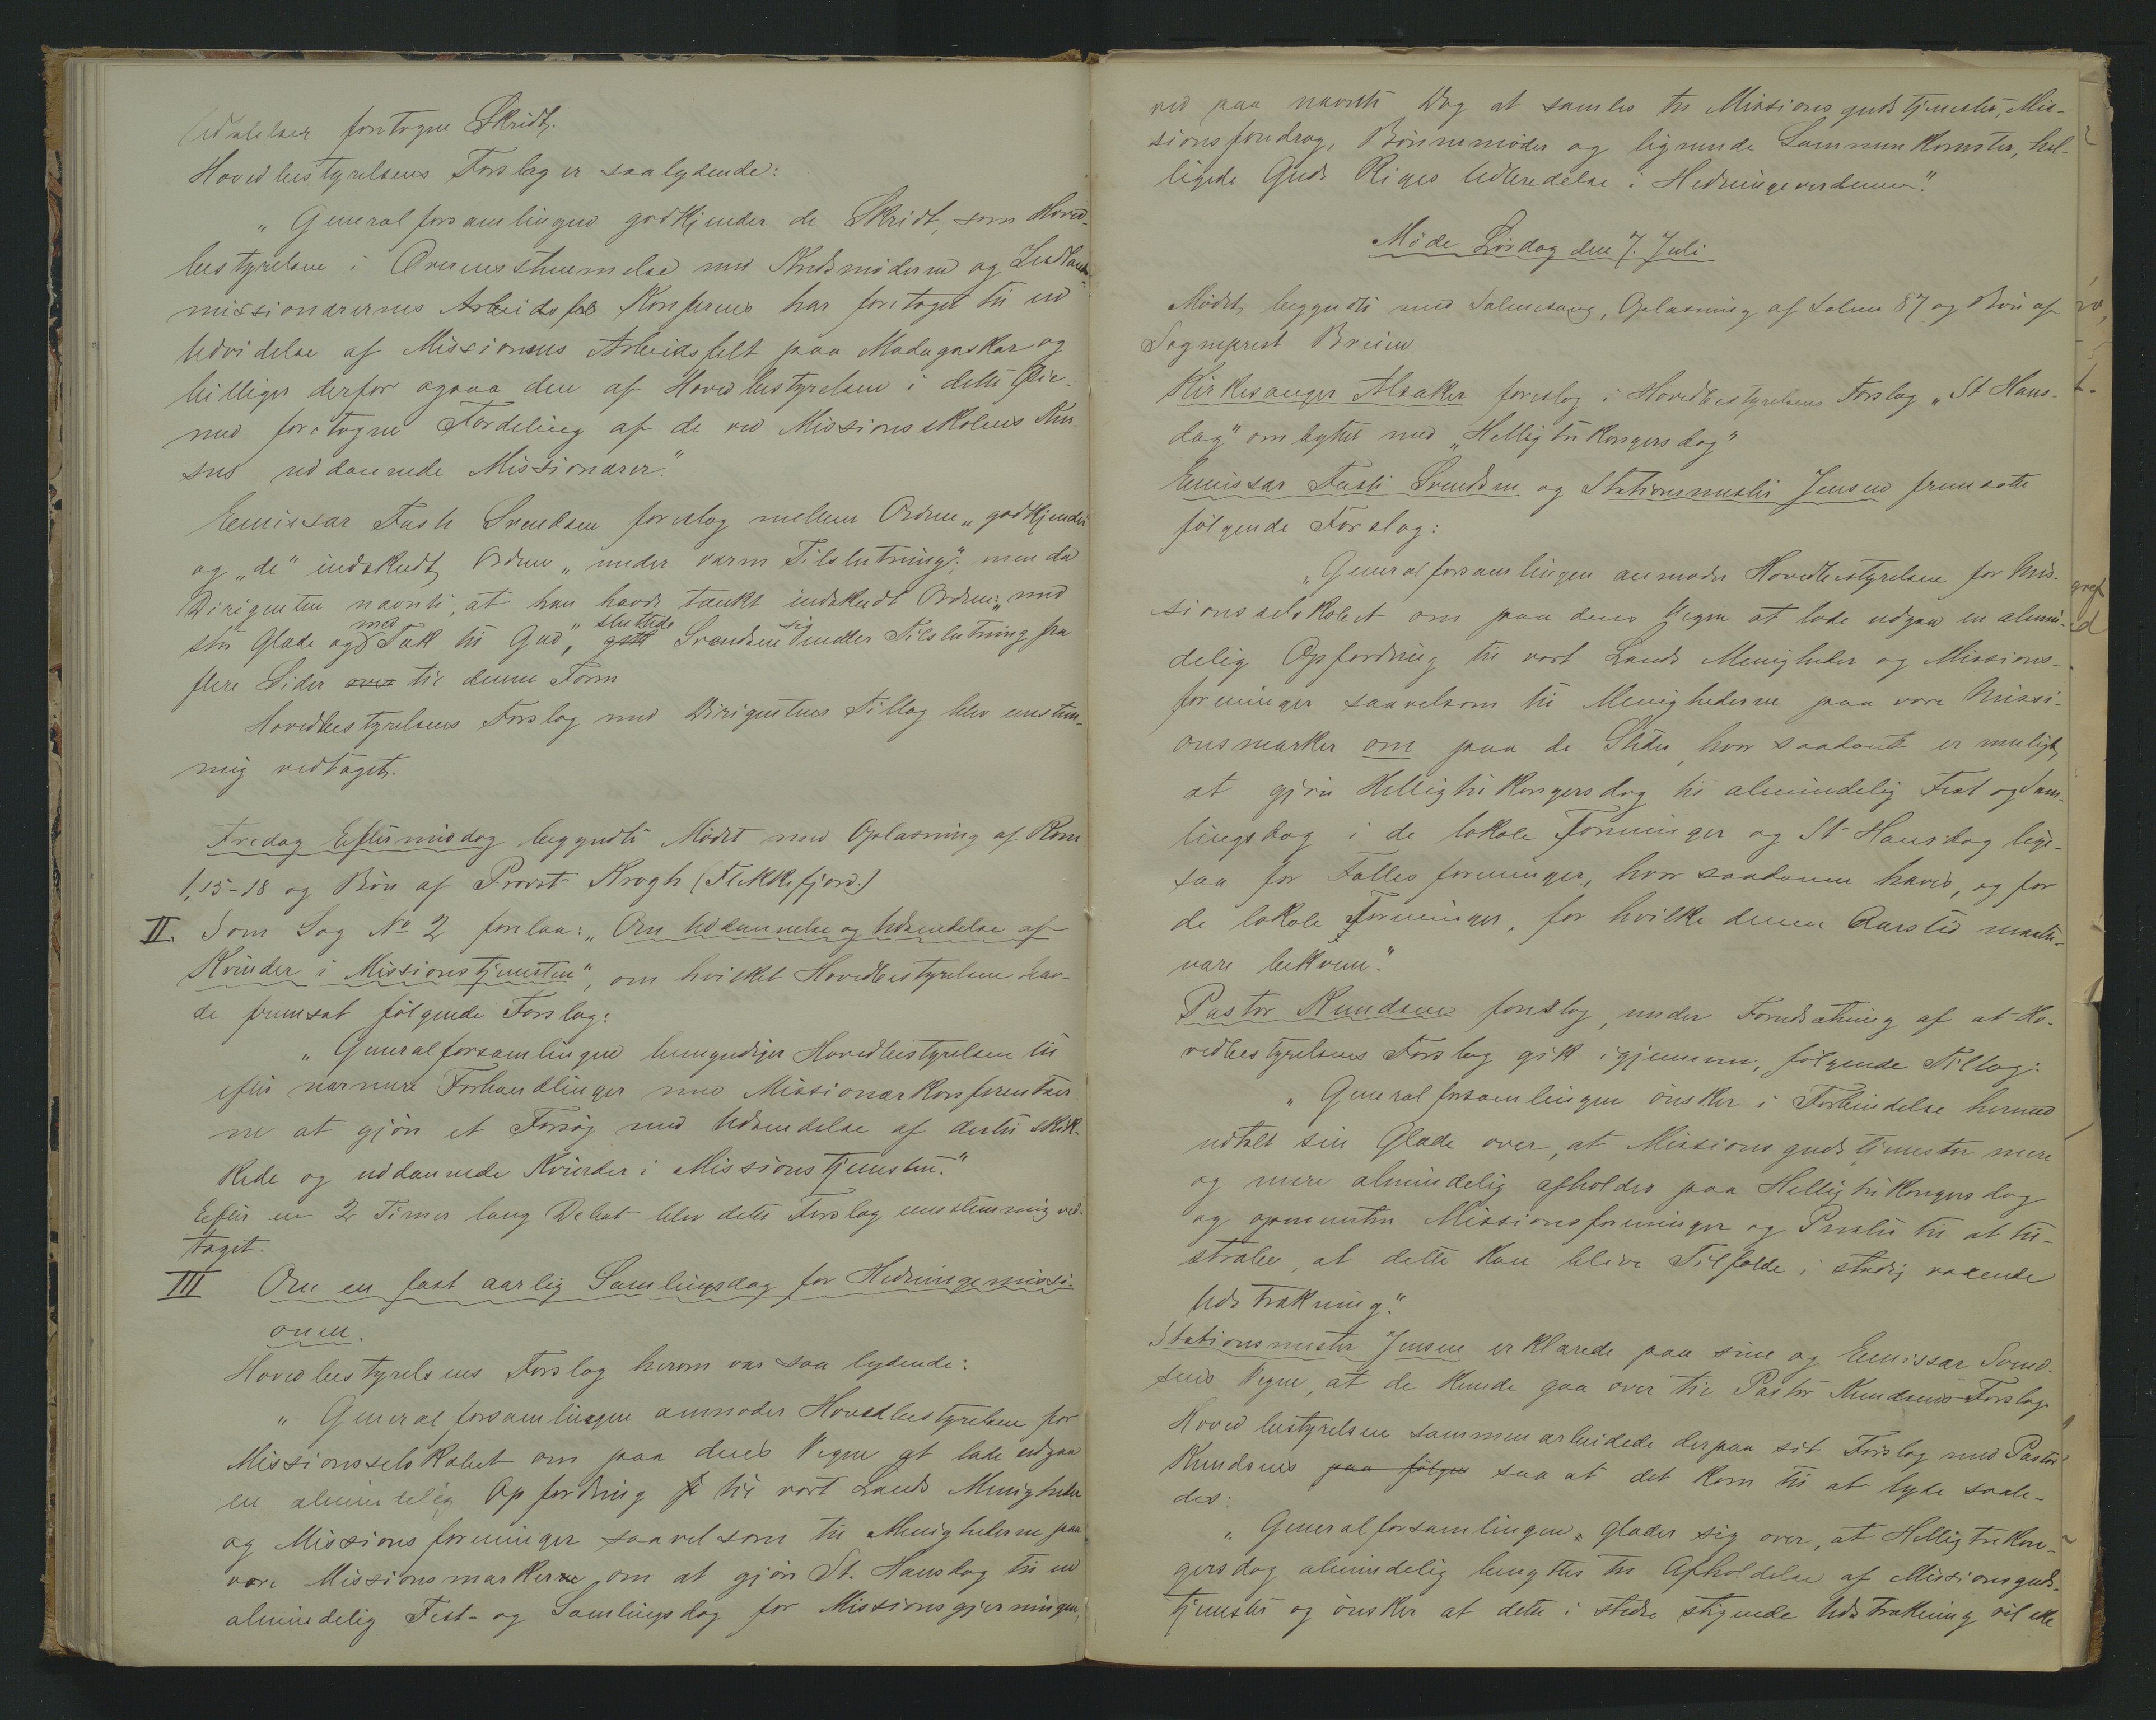 Udtalelser foretagne Skridt.
Hovedbestyrelsens Forslag er saalydende:
„Generalforsamlingen godkjender de Skridt, som Hoved-
bestyrelsen i Overensstemmelse med Kredsmøderne og Indlands-
missionærernes Arbeidsfel Konferens har foretaget til en
Udvidelse af Missionens Arbeidsfelt paa Madagaskar og
billiger derfor ogsaa den af Hovedbestyrelsen i dette Øie-
med foretagne Fordeling af de ved Missionsskolens Kur-
sus uddannede Missionærer.“
Emissær Svendsen foreslog mellem Ordene „godkjender“
og „de“ indskudt Ordene „under varm Tilslutning“; men da
Dirigenten nævnte, at han havde tænkt indskudt Ordene: „med
stor Glæde og med Tak til Gud“, sluttede Svendsen sig under Tilslutning fra
flere Sider over til denne Form
Hovedbestyrelsens Forslag med Dirigentens Tillæg blev enstem-
mig vedtaget.
Fredag Eftermiddag begyndte Mødet med Oplæsning af Rom
1,15-18 og Bøn af Provst Krogh (Flekkefjord.)
II. Som Sag No 2 forelaa: „Om Uddannelse og Udsendelse af
Kvinder i Missionstjenesten“, om hvilket Hovedbestyrelsen hav-
de fremsat følgende Forslag:
„Generalforsamlingen bemyndiger Hovedbestyrelsen til
efter nærmere Forhandlinger med Missionærkonferentser-
ne at gjøre et Forsøg med Udsendelse af dertil skik-
kede og uddannede Kvinder i Missionstjenesten.“
Efter en 2 Timer lang Debat blev dette Forslag enstemmig ved-
taget.
III Om en fast aarlig Samlingsdag for Hedningemissi-
onen.
Hovedbestyrelsens Forslag herom var saa lydende:
„Generalforsamlingen anmoder Hovedbestyrelsen for
Missionsselskabet om paa dens Vegne at lade udgaa
en almindelig Opfordring til vort Lands Menigheder
og Missionsforeninger saavelsom til Menighederne paa
vore Missionsmarkerne om at gjøre St. Hansdag til en
almindelig Fest- og Samlingsdag for Missionsgjerningen,
ved paa nævnte Dag at samles til Missionsgudstjenester, Mis-
sionsforedrag, Bønnemøder og lignende Sammenkomster, hel-
ligede Guds Riges Udbredelse i Hedningeverdenen“.
Møde Lørdag den 7. Juli
Mødet begyndte med Salmesang, Oplæsning af Salme 87 og Bøn af
Sogneprest Breien
Kirkesanger Alsaker foreslog i Hovedbestyrelsens Forslag „St Hans-
dag“ ombyttet med „Helligtrekongersdag“
Emissær Svendsen og Stationsmester Jensen fremsatte
følgende Forslag:
„Generalforsamlingen anmoder Hovedbestyrelsen for Mis-
sionsselskabet om paa dens Vegne at lade udgaa en almin-
delig Opfordring til vort Lands Menigheder og Missions-
foreninger saavelsom til Menighederne paa vore Missi-
onsmarker om paa de Steder, hvor saadant er muligt,
at gjøre Helligtrekongersdag til almindelig Fest og Sam-
lingsdag i de lokale Foreninger og St Hansdag lige-
saa for Fællesforeninger, hvor saadanne haves, og for
de lokale Foreninger, for hvilke denne Aarstid maatte
være bekvem.“
Pastor Knudsen foreslog, under Forudsætning af at Ho-
vedbestyrelsens Forslag gik igjennem, følgende Tillæg:
„Generalforsamlingen ønsker i Forbindelse hermed
udtalt sin Glæde over, at Missionsgudstjenester mere
og mere almindelig afholdes paa Helligtrekongersdag
og opmuntrer Missionsforeninger og Prester til at til-
stræbe, at dette kan blive Tilfælde i stadig voxende
Udstrækning.“
Stationsmester Jensen erklærede paa sine og Emissær Svend-
sens Vegne, at de kunde gaa over til Pastor Knudsens Forslag.
Hovedbestyrelsen sammenarbeidede derpaa sit Forslag med Pastor
Knudsens paa følgen saa at det kom til at lyde saale-
des:
„Generalforsamlingen glæder sig over, at Helligtrekon-
gersdag almindelig benyttes til Afholdelse af Missionsguds-
tjenester og ønsker at dette i stedse stigende Udstrækning vil ske